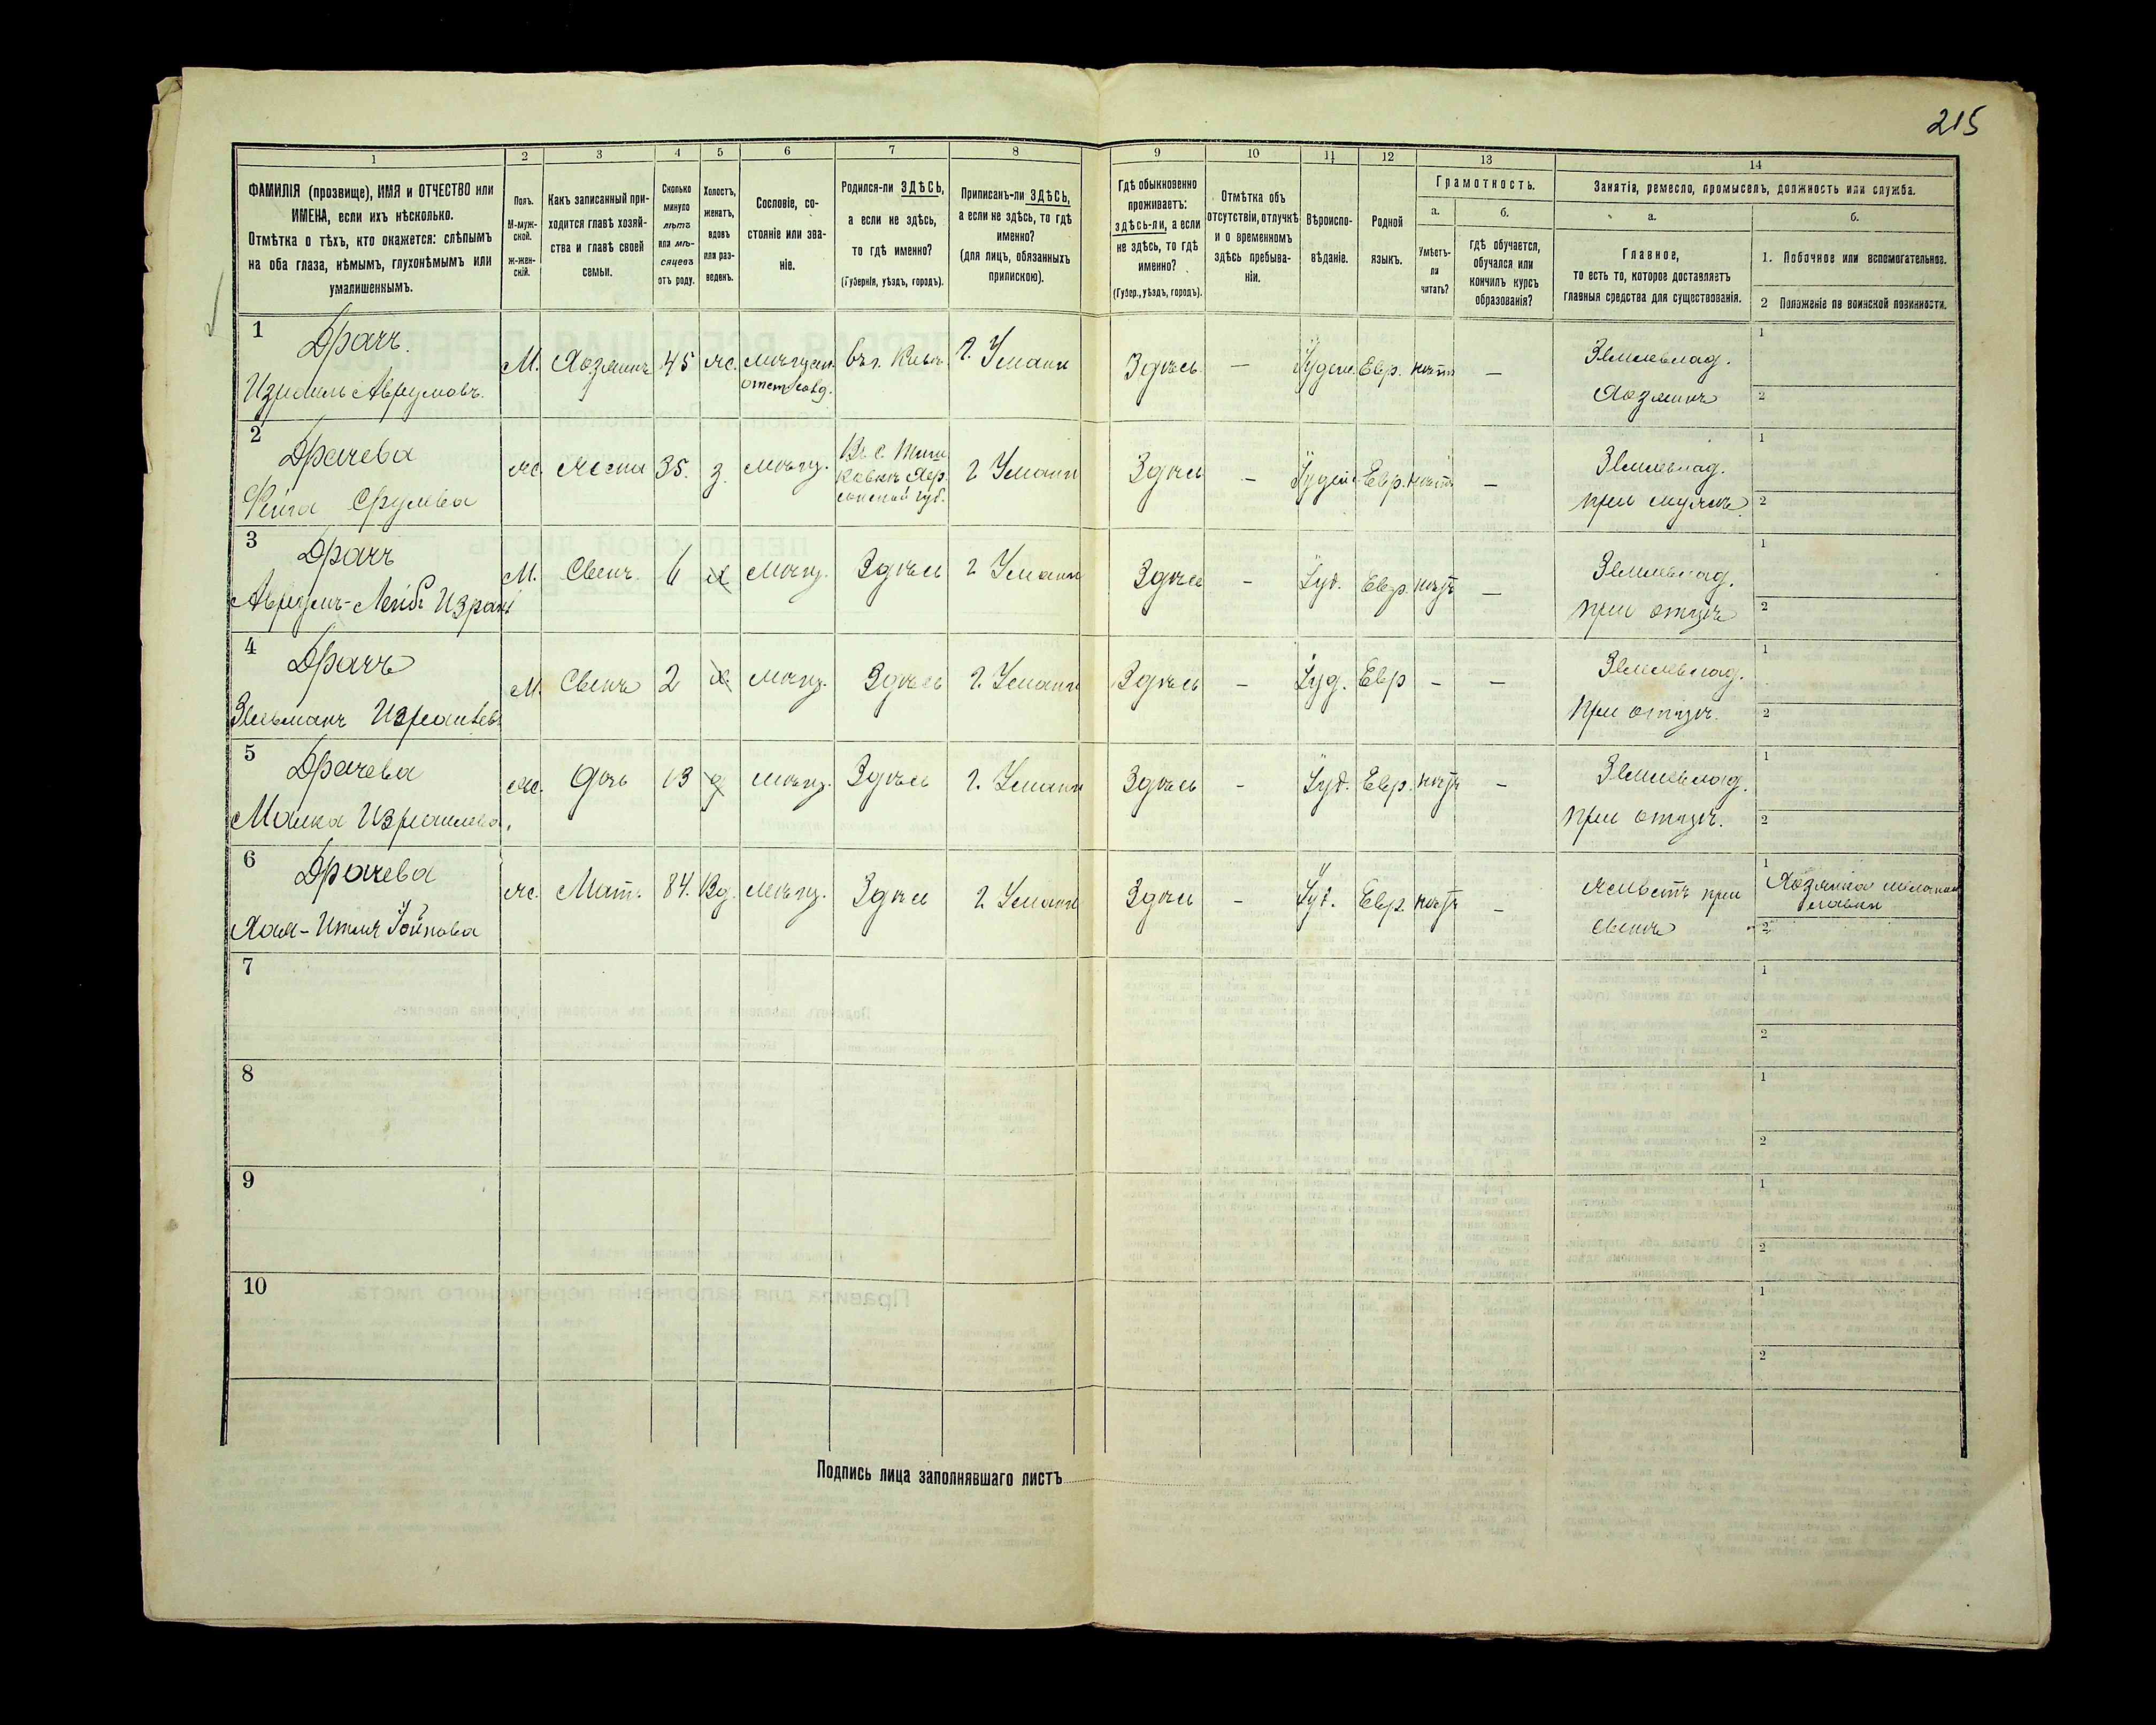 215
1
2
3
4
5
6
7
8
9
10
11
12
13
14
ФАМИЛІЯ (прозвище), ИМЯ и ОТЧЕСТВО или
ИМЕНА, если ихъ нѣсколько.
Отмѣтка о тѣхъ, кто окажется: слѣпымъ
на оба глаза, нѣмымъ, глухонѣмымъ или
умалишеннымъ.
Полъ.
М-муж-
ской.
Ж-жен-
скій.
Какъ записанный при-
ходится главѣ хозяй-
ства и главѣ своей
семьи.
Сколько
минуло
лѣтъ
или мѣ-
сяцевъ
отъ роду.
Холостъ,
женатъ,
вдовъ
или раз-
веденъ.
Сословіе, со-
стояніе или зва-
ніе.
Родился-ли ЗДѢСЬ,
а если не здѣсь,
то гдѣ именно?
(Губернія, уѣздъ, городъ).
Приписанъ-ли ЗДѢСЬ,
а если не здѣсь, то гдѣ
именно?
(для лицъ, обязанныхъ
припискою).
Гдѣ обыкновенно
проживаетъ:
здѣсь-ли, а если
не здѣсь, то гдѣ
именно?
(Губер., уѣздъ, городъ).
Отмѣтка объ
отсутствіи, отлучкѣ
и о временномъ
здѣсь пребыва-
ніи.
Вѣроиспо-
вѣданіе.
Родной
языкъ.
Грамотность.
а.
Умѣетъ-
ли
читать?
б.
гдѣ обучается,
обучался или
кончилъ курсъ
образованія?
Занятія, ремесло, промыселъ, должность или служба.
а.
Главное,
то есть то, которое доставляетъ
главныя средства для существованія.
б.
1. Побочное или вспомогательное.
2 Положеніе по воинской повинности.
1
Драчъ.
Израиль Аврумовъ.
М. Хозяинъ 45 Ж. въ г. Г. Умани
Здѣсь — Іудей. Евр. нѣтъ —
Землевлад.
Хозяинъ
1
2
2
Драчева
Срулева
Ж. Жена 35. З. Мѣщ. Г. Умани
губ.
Здѣсь — Іудей. Евр. нѣтъ —
Землевлад.
при мужѣ.
1
2
3
Драчъ
Аврумъ-Лейбъ
М. Сынъ. 6 Х Мѣщ. Здѣсь Г. Умани
Здѣсь — Іуд. Евр. нѣтъ —
Землевлад.
при отцѣ
1
2
4
Драчъ
Зельманъ Израилевъ
М. Сынъ 2 Х Мѣщ. Здѣсь Г. Умани
Здѣсь — Іуд. Евр — —
Землевлад.
При отцѣ.
1
2
5
Драчева
Малка Израилева.
Ж. Дочь 13 Мѣщ. Здѣсь Г. Умани
Здѣсь — Іуд. Евр. нѣтъ —
Землевлад.
При отцѣ.
1
2
6
Драчева
Хая-
Ж. Мать. 84. Вд. Мѣщ. Здѣсь Г. Умани
Здѣсь — Іуд. Евр. нѣтъ —
Живетъ при
сынѣ
1
Хозяйка
лавки
2
7
1
2
8
1
2
9
1
2
10
1
2
Подпись лица заполнявшаго листъ